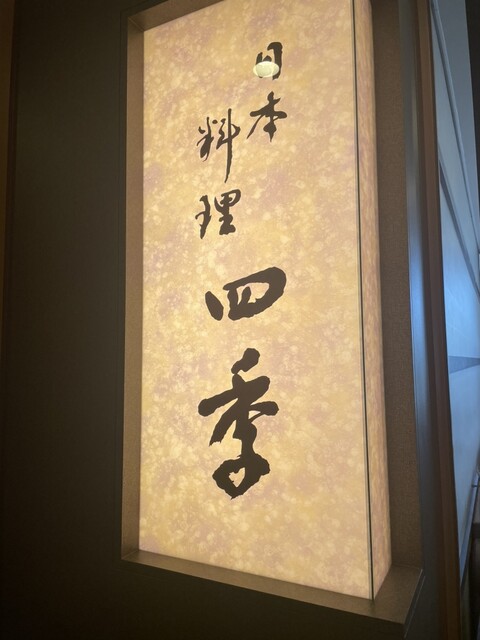 日本
料理
四季